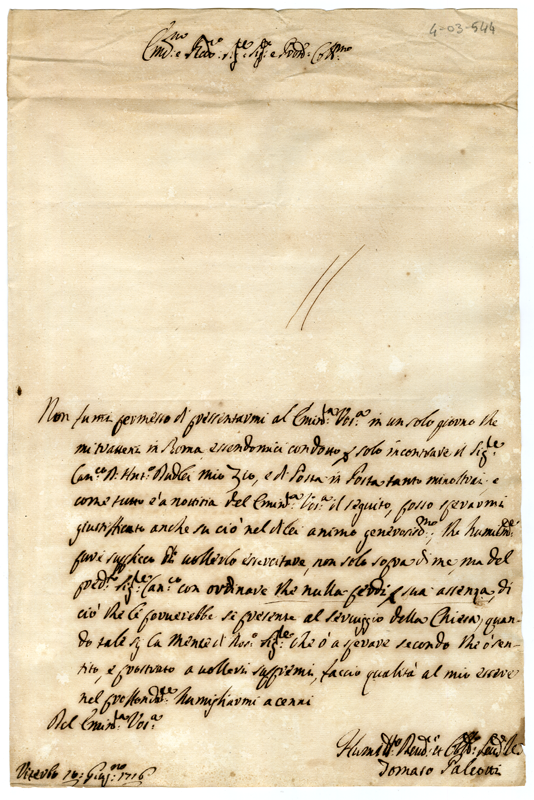 4-03-544
Em.no e Rev.o Sig.e Sig.e e Pron.
Non fummi permesso di pressentarmi al Emin.a Vos.a in un solo giorno che
mi trattenni in Roma essendomici condotto solo incontrare il Sig.re
Can.co mio Zio, e di Posta in Posta tanto inoltrai e
come tutto è a notitia del Emin.a Vos.a il seguito, posso sperarmi
giustificato anche su ciò nel di lei animo generosis.mo, che humilm.e
supplico di volerlo esercitare, non solo sopra di me, ma del
pred.o Sig.re Can.co con ordinare che nulla perdi sua assenza, di
ciò che le proverebbe se presente al serviggio della Chiesa, quan-
do tale sij la mente di Nos.o Sig.re che ò a sperare secondo che ò sen-
tito, e prostrato a voleri suppremi, faccio qualità al mio essere
nel humigliarmi a cenni
Del Emin.a Vos.a
Viterbo Giug.no 1716
Humil.mo
Tomaso Paleotti